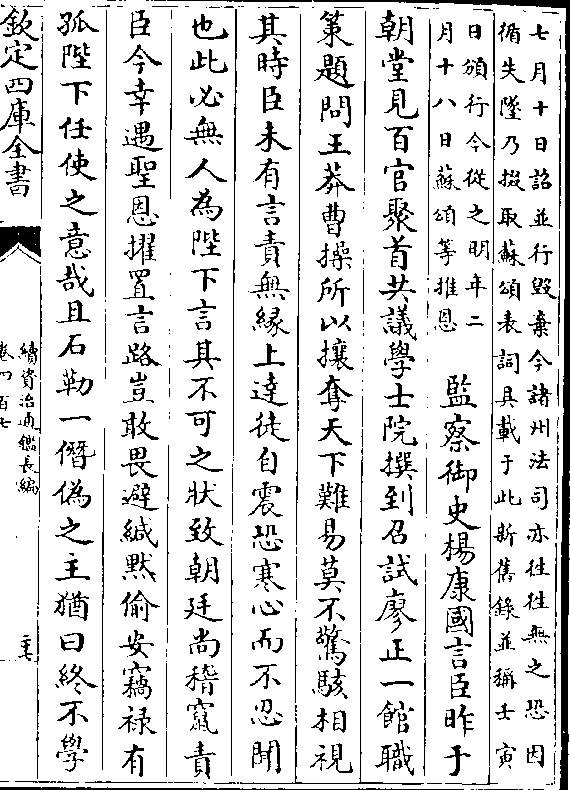 七月十日詔並行毀棄今諸州法司亦往往無之恐因
循失墜乃掇取蘇頌表詞具載于此新舊錄並稱壬寅
日頒行今從之明年二
月十八日蘇頌等推恩
監察御史楊康國言臣昨于
朝堂見百官聚首共議學士院撰到召試廖正一館職
策題問王莽曹操所以攘奪天下難易莫不驚駭相視
其時臣未有言責無縁上達徒自震恐寒心而不忍聞
也此必無人為陛下言其不可之狀致朝廷尚稽竄責
臣今幸遇聖恩擢置言路豈敢畏避緘默偷安竊禄有
孤陛下任使之意哉且石勒一僭偽之主猶曰終不學
欽定四庫全書
續資治通鑑長編
卷四百七